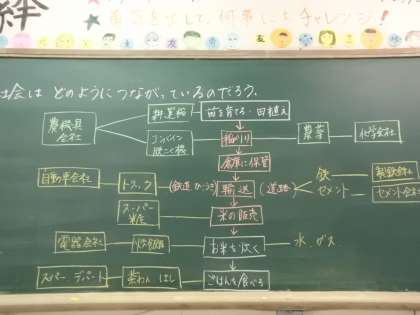 絆
何事にもチャレンジ!
社会は どのようにつながっているのだろう。
農機具会社
耕運機
苗を育てる・田植え
コンバイン
稲かり
農薬
化学会社
倉庫に保管
自動車会社
トラック
(鉄道
輸送
(道路
鉄
製鉄会社
セメント
セメント会社
スーパー
米の販売
電器会社
炊飯器
お米を炊く
水、ガス
スーパー デパート
茶わん はし
ごはんを食べる